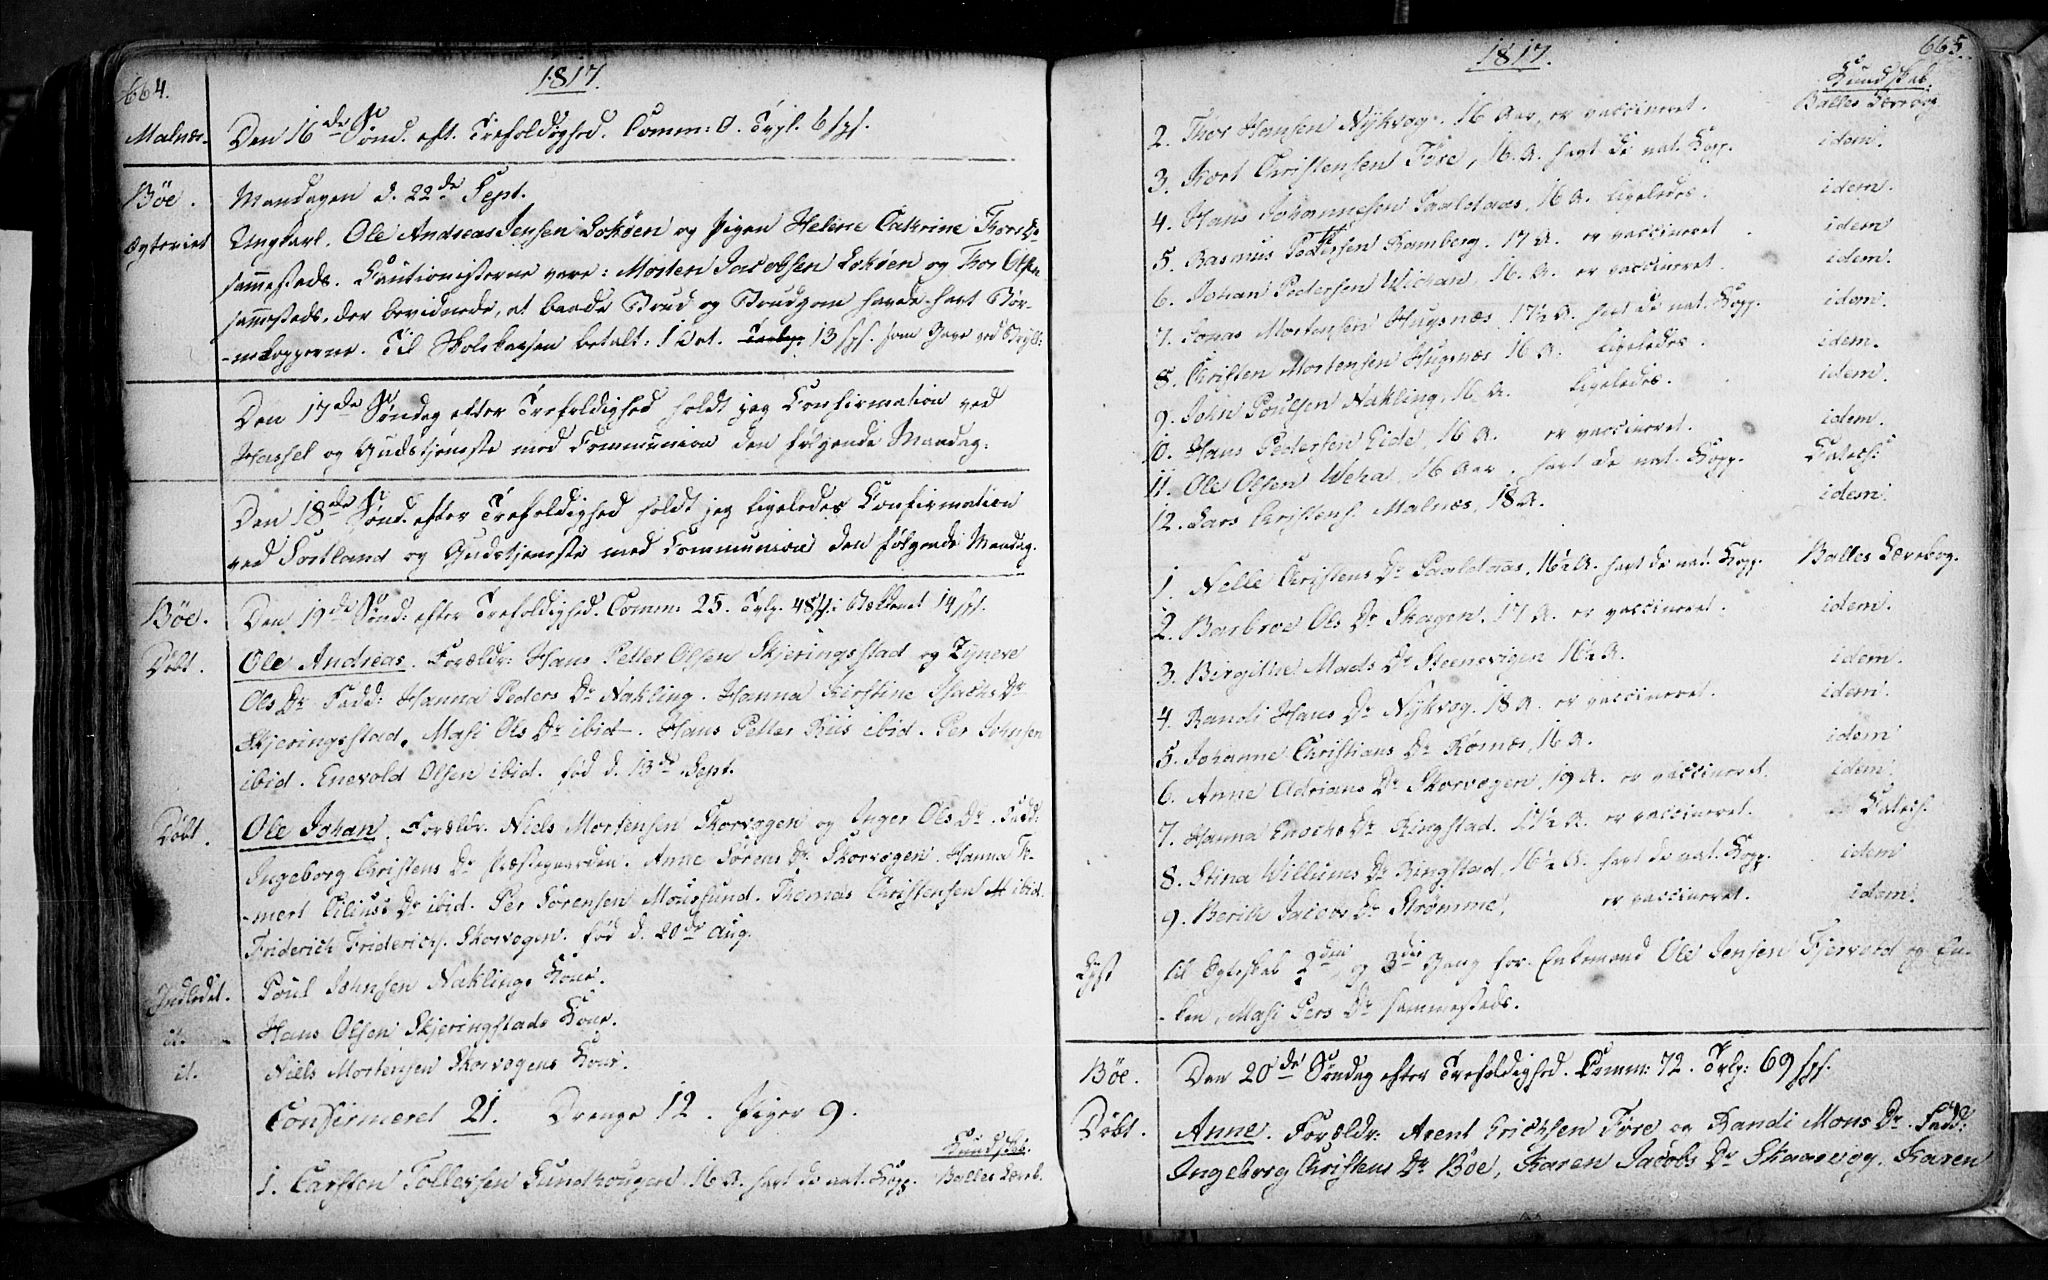 664.
1817
Malnæs. Den 16de S. Sønd. eft. Trefoldighed. Comm: 0. Tvgl. 6 sps.
Böe. Mandagen d. 22de Sept.
Ægteviet Ungkarl. Ole Andreas Jensen Loköen og Pigen Helene Cathrine Thors Dr
sammesteds. Cautionisterne vare: Morten Jacobsen Loköen og Thor Olsen
sammesteds, der bevidnede, at baade Brud og Brudgom havde havt Bör-
nekopperne. Til Skolekassen betalt: 1 Ort. 13 sps. som Gave ved Bryll:
Den 17de S. Söndag efter Trefoldighed holdt jeg Confirmation ved
Hassel og Gudstjeneste med Communion den følgende Mandag.
Den 18de S. Sønd. efter Trefoldighed holdt jeg ligeledes Confirmation
ved Sortland og Gudstjeneste med Communion den følgende Mandag.
Böe. Den 19de S. Sønd: efter Trefoldighed. Comm: 25. Tvlg. 48 14 sps.
Döbt. Ole Andreas. Forældr: Hans Petter Olsen Skjeringsstad og Zyneve
Ols Dr Fadd: Hanna Peders Dr Nakling. Hanna Kirstine Dr
Skjeringsstad, Masi Ols Dr ibid. Hans Petter Riis ibid. Per Johnsen
ibid. Enevold Olsen ibid. fød d. 13de Sept.
Döbt. Ole Johan. Forældr. Niels Mortensen Skorvogen og Inger Ols Dr. Fadd:
Ingeborg Christens Dr Præstegaarden. Anne Sörens Dr Skorvogen. Hanna
Cilius Dr ibid. Per Sörensen Moursund. Thomas Christensen ibid.
Friderich Friderichs. Skorvogen. fød d. 20de Aug.
Indledet. Poul Johnsen Naklings Kone.
it. Hans Olsen Skjeringstads Kone.
it. Niels Mortensen Skorvogens Kone.
Confirmered 21. Drenge 12. Piger 9.
Kundskb.
1. Carsten Tollevsen Sundhougen. 16 A. havt de nat. Kopp. Balles Læreb.
665.
1817.
Kundskab.
2. Thor Hansen Nykvog. 16 Aar, er vaccineret. Balles Lærebog
3. Kort Christensen Före, 16 A. havt de nat. Kopp. idem.
4. Hans Johannesen Saaldaas, 16 A. ligeledes. idem.
5. Rasmus Pettersen Ramberg. 17 A. er vaccineret. idem.
6. Johan Pedersen Wichan, 16. A. er vaccineret. idem.
7. Jonas Mortensen Hugsnæs, 17½ A. havt de nat. Kopp. idem.
8. Christen Mortensen Hugsnæs 16 A. ligeledes. idem.
9. John Poulsen Nakling, 16½ A. ligeledes. idem.
10. Hans Pedersen Eide, 16 A. er vaccineret. idem.
11. Ole Olsen Weha, 16 Aar. havt de nat. Kopp. Catech:
12. Lars Christens. Malnæs, 18 A. idem.
1. Nelle Christens Dr Saaldaas, 16½ A. havt de nat. Kopp. Balles Lærebog.
2. Barbroe Ols Dr Skagen. 17 A. er vaccineret. idem.
3. Birgithe Mads Dr Steensvigen 16½ A. idem.
4. Randi Hans Dr Nykvog. 18 A. er vaccineret. idem.
5. Johanne Christians Dr Römæs, 16 A. idem
6. Anne Adrians Dr Skorvogen, 19 A. er vaccineret. idem.
7. Hanna Enochs Dr Ringstad. 17½ A. er vaccineret. Catech:
8. Stina Willums Dr Ringstad, 16½ A. havt de nat. Kopp. idem
9. Berit Jacobs Dr Strömme, er vaccineret. idem.
Lyst til Egteskab 2den og 3die Gang for. Enkemand Ole Jensen Fjerverd og En-
ken, Masi Pers Dr sammesteds.
Böe. Den 20de S. Söndag efter Trefoldighed. Comm: 72. Tvlg: 69 sps.
Döbt. Anne. Forældr: Arent Erichsen Före og Randi Mons Dr. Fadd:
Ingeborg Christens Dr Böe, Karen Jacobs Dr Skaarvog, Karen